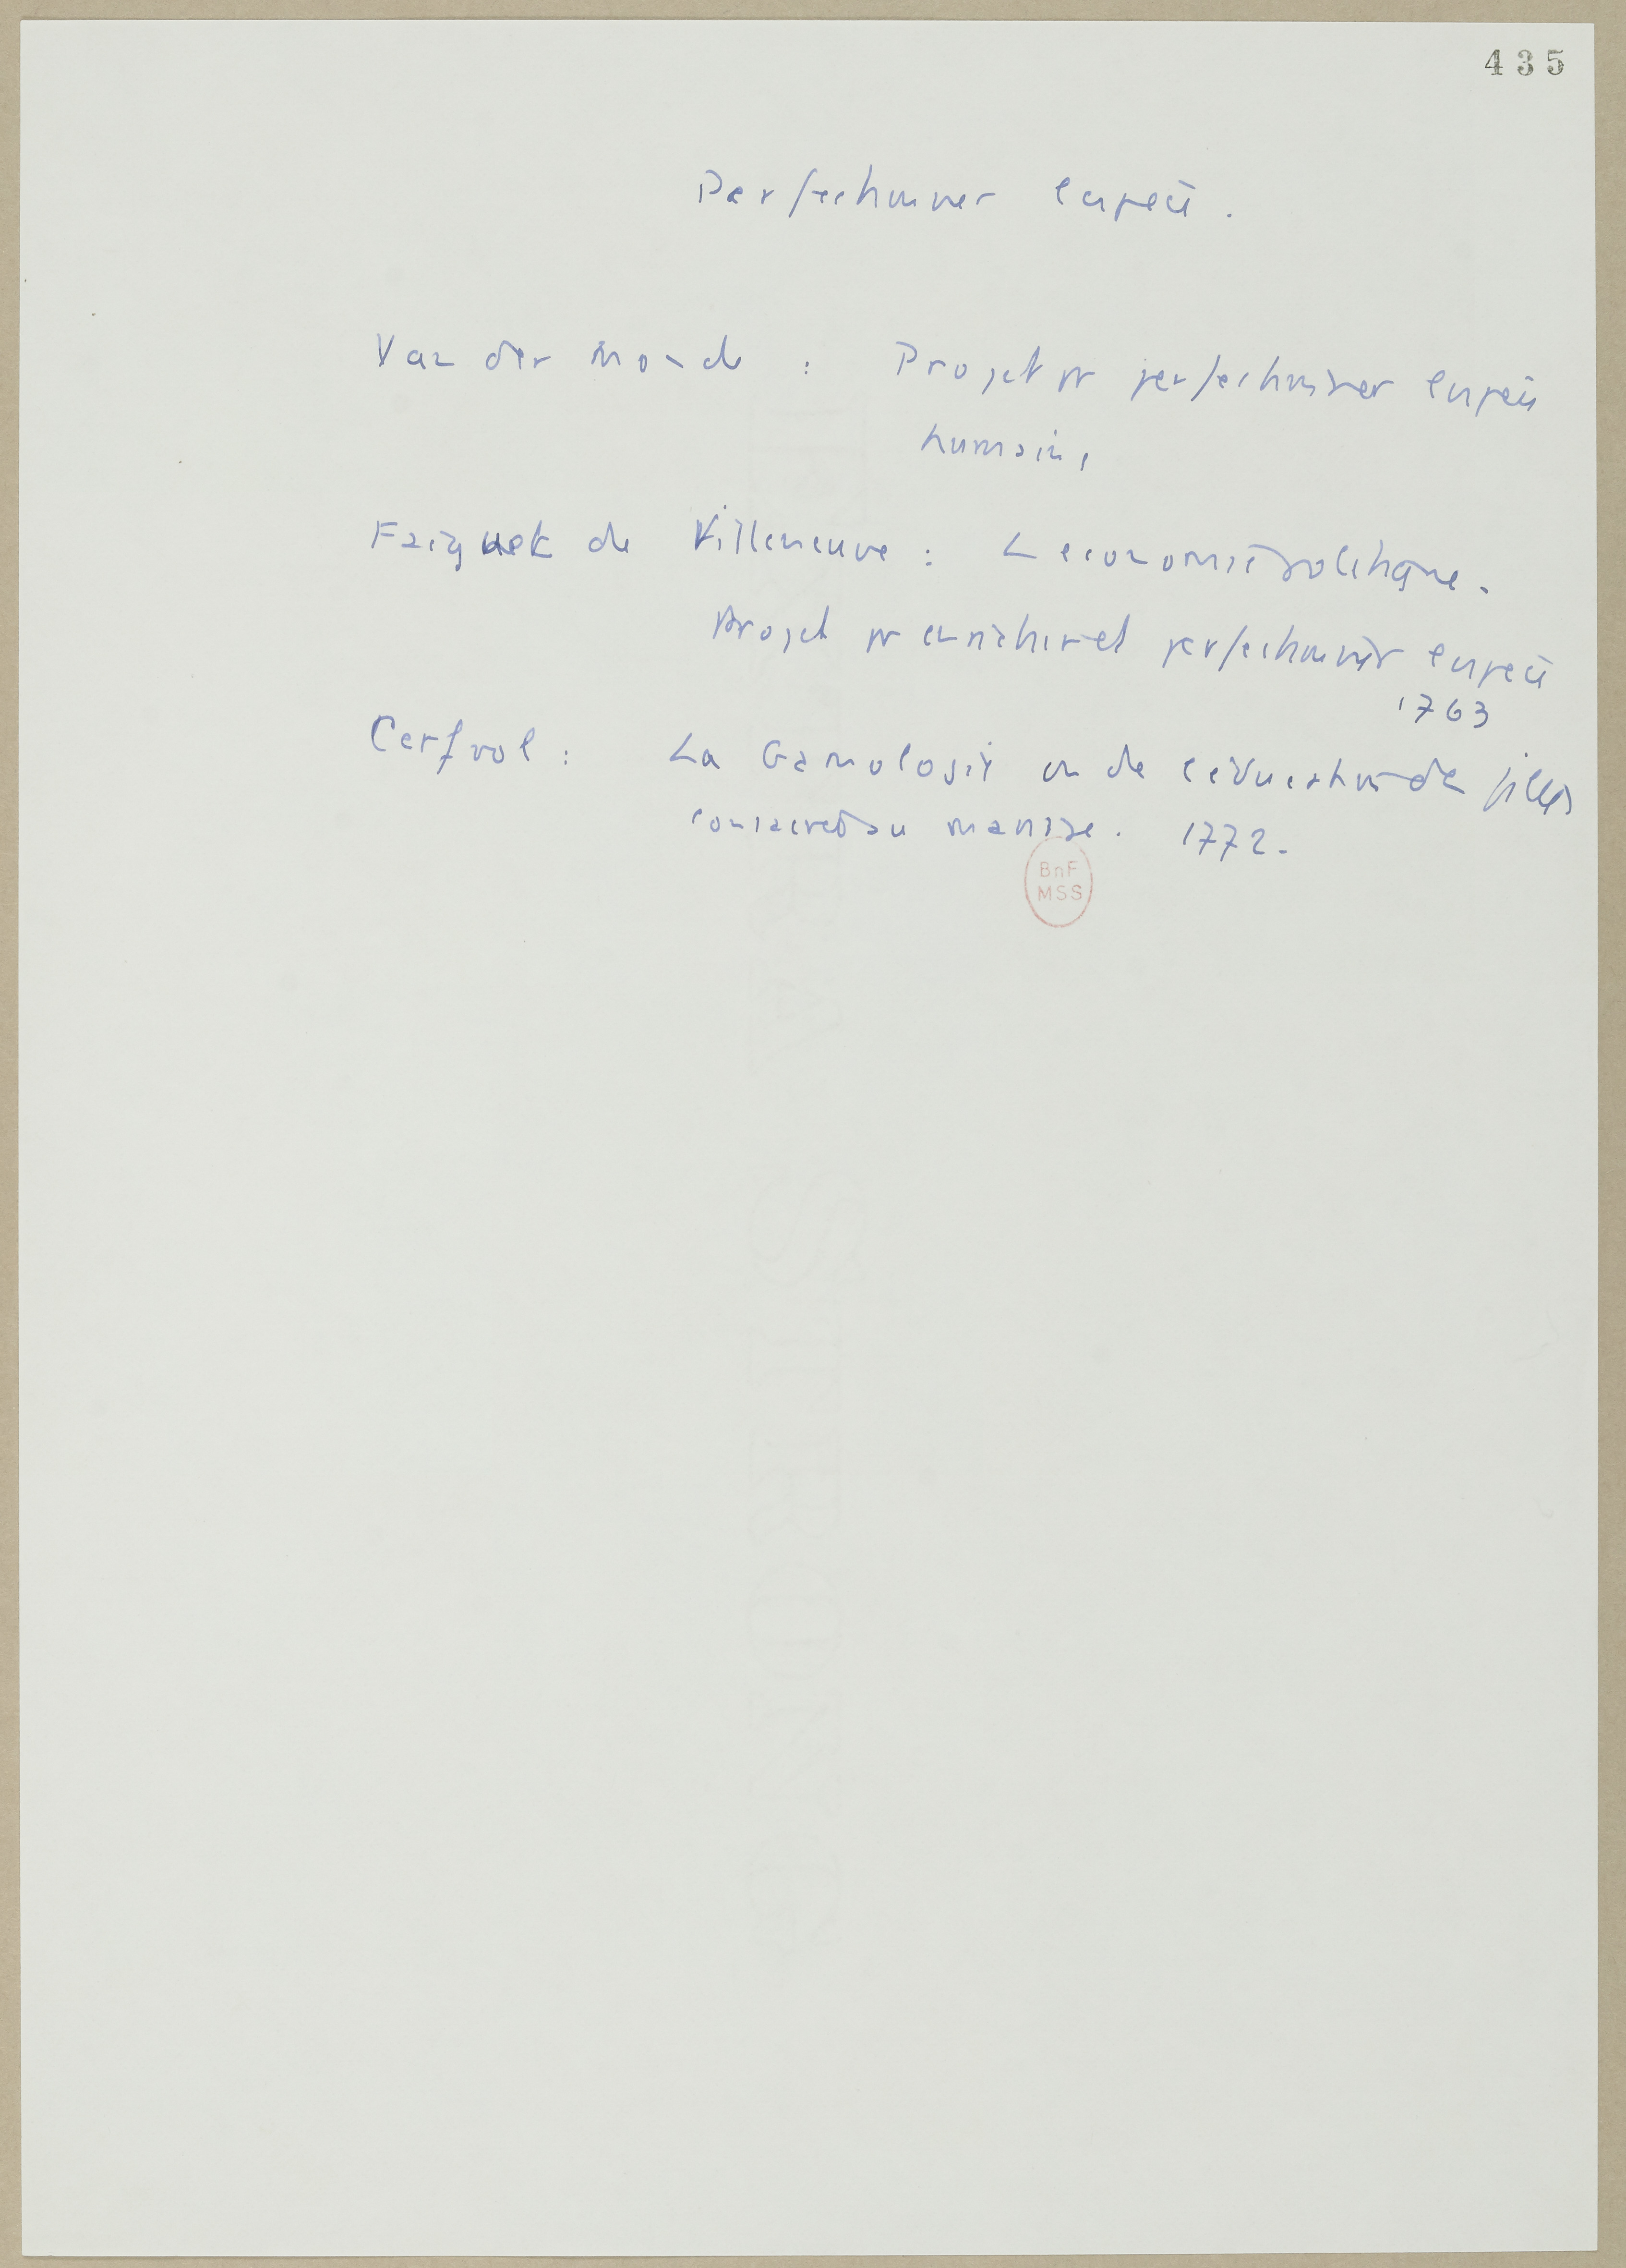 435
Perfectionner l'espèce.
Van der Monde : Projet pr perfectionner l'espèce
humaine
Faiguet de Villeneuve : L'économie politique.
Projet pr enrichir et perfectionner l'espèce
1763
Cerfvol : La Gamologie ou de l'éducation de filles
consacrées au mariage. 1772.
BnF
MSS